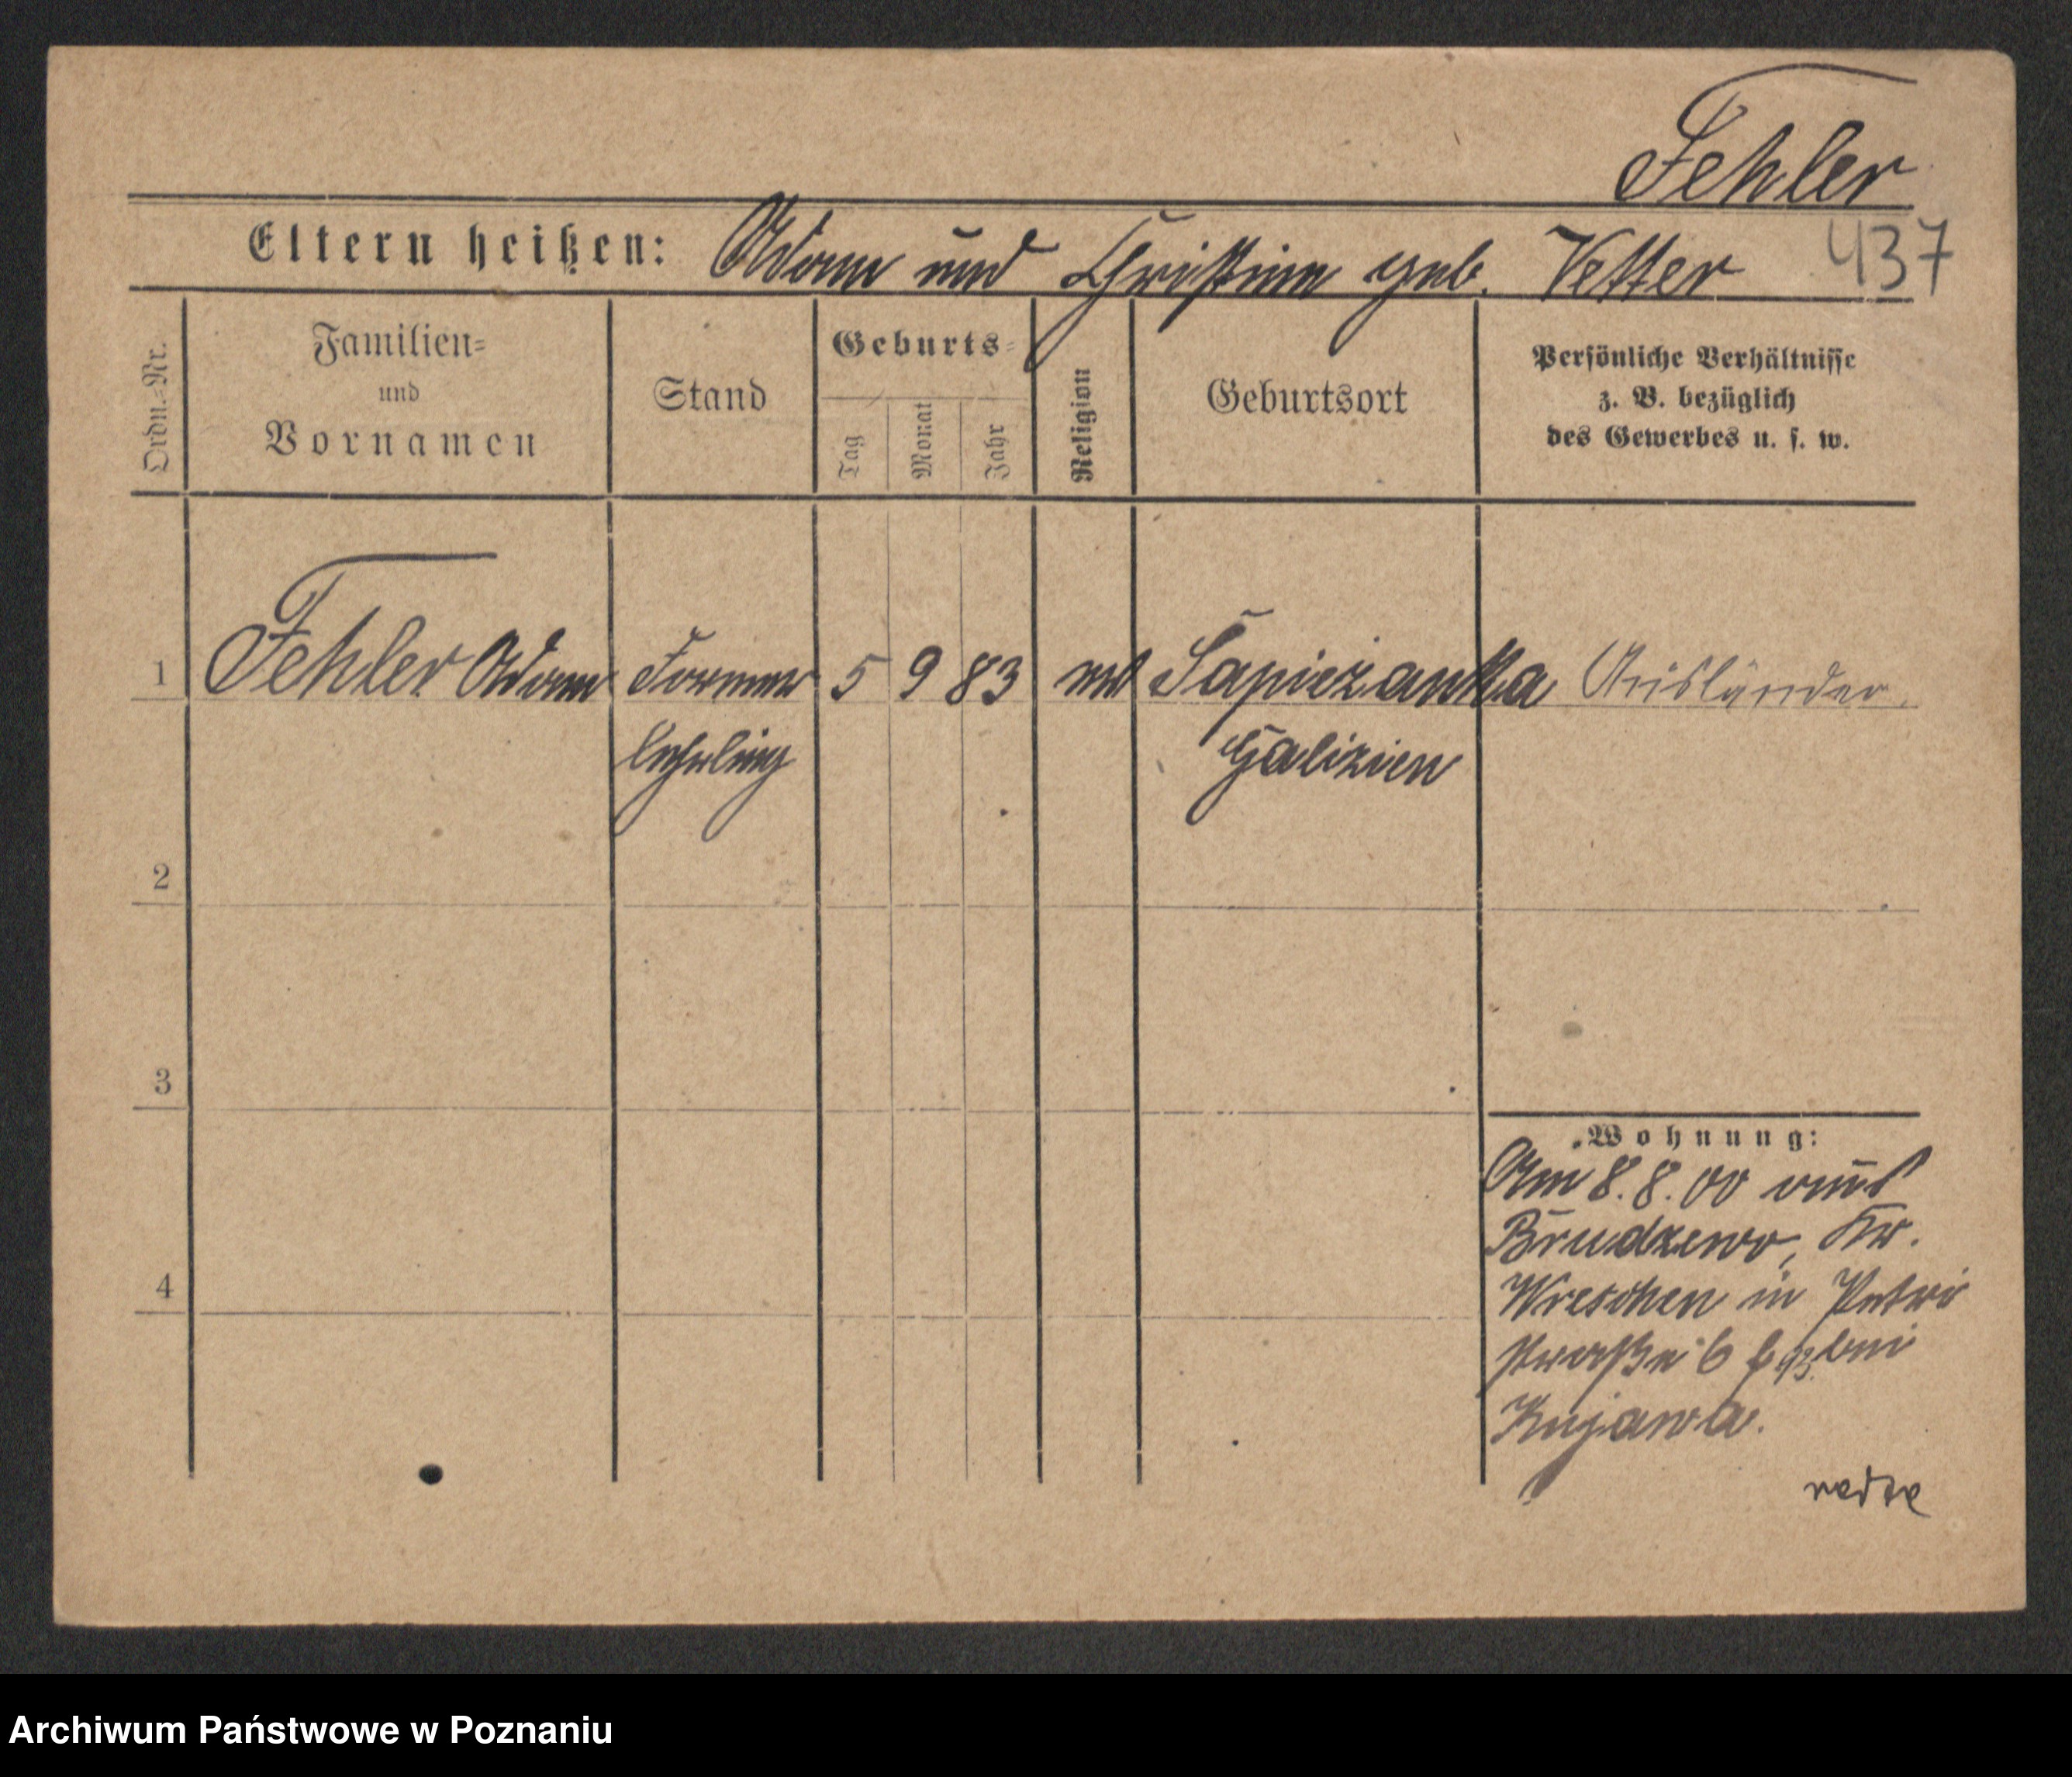 Fehler
Eltern heißen: Adam und Christine geb. Vetter 437
Ordn.-Nr.
Familien-
und
Vornamen
Stand
Geburts-
Tag
Monat
Jahr
Religion
Geburtsort
Persönliche Verhältnisse
z. B. bezüglich
des Gewerbes u. s. w.
1 Fehler Adam Former 5 9 83 Sapiezanka Ausländer.
lehrling Galizien
2
3
Wohnung:
Am 8. 8. 00 aus
Brudzewo, Kr.
4
Wreschen in Petri
straße 6 bei
Kujawa.
Archiwum Państwowe w Poznaniu